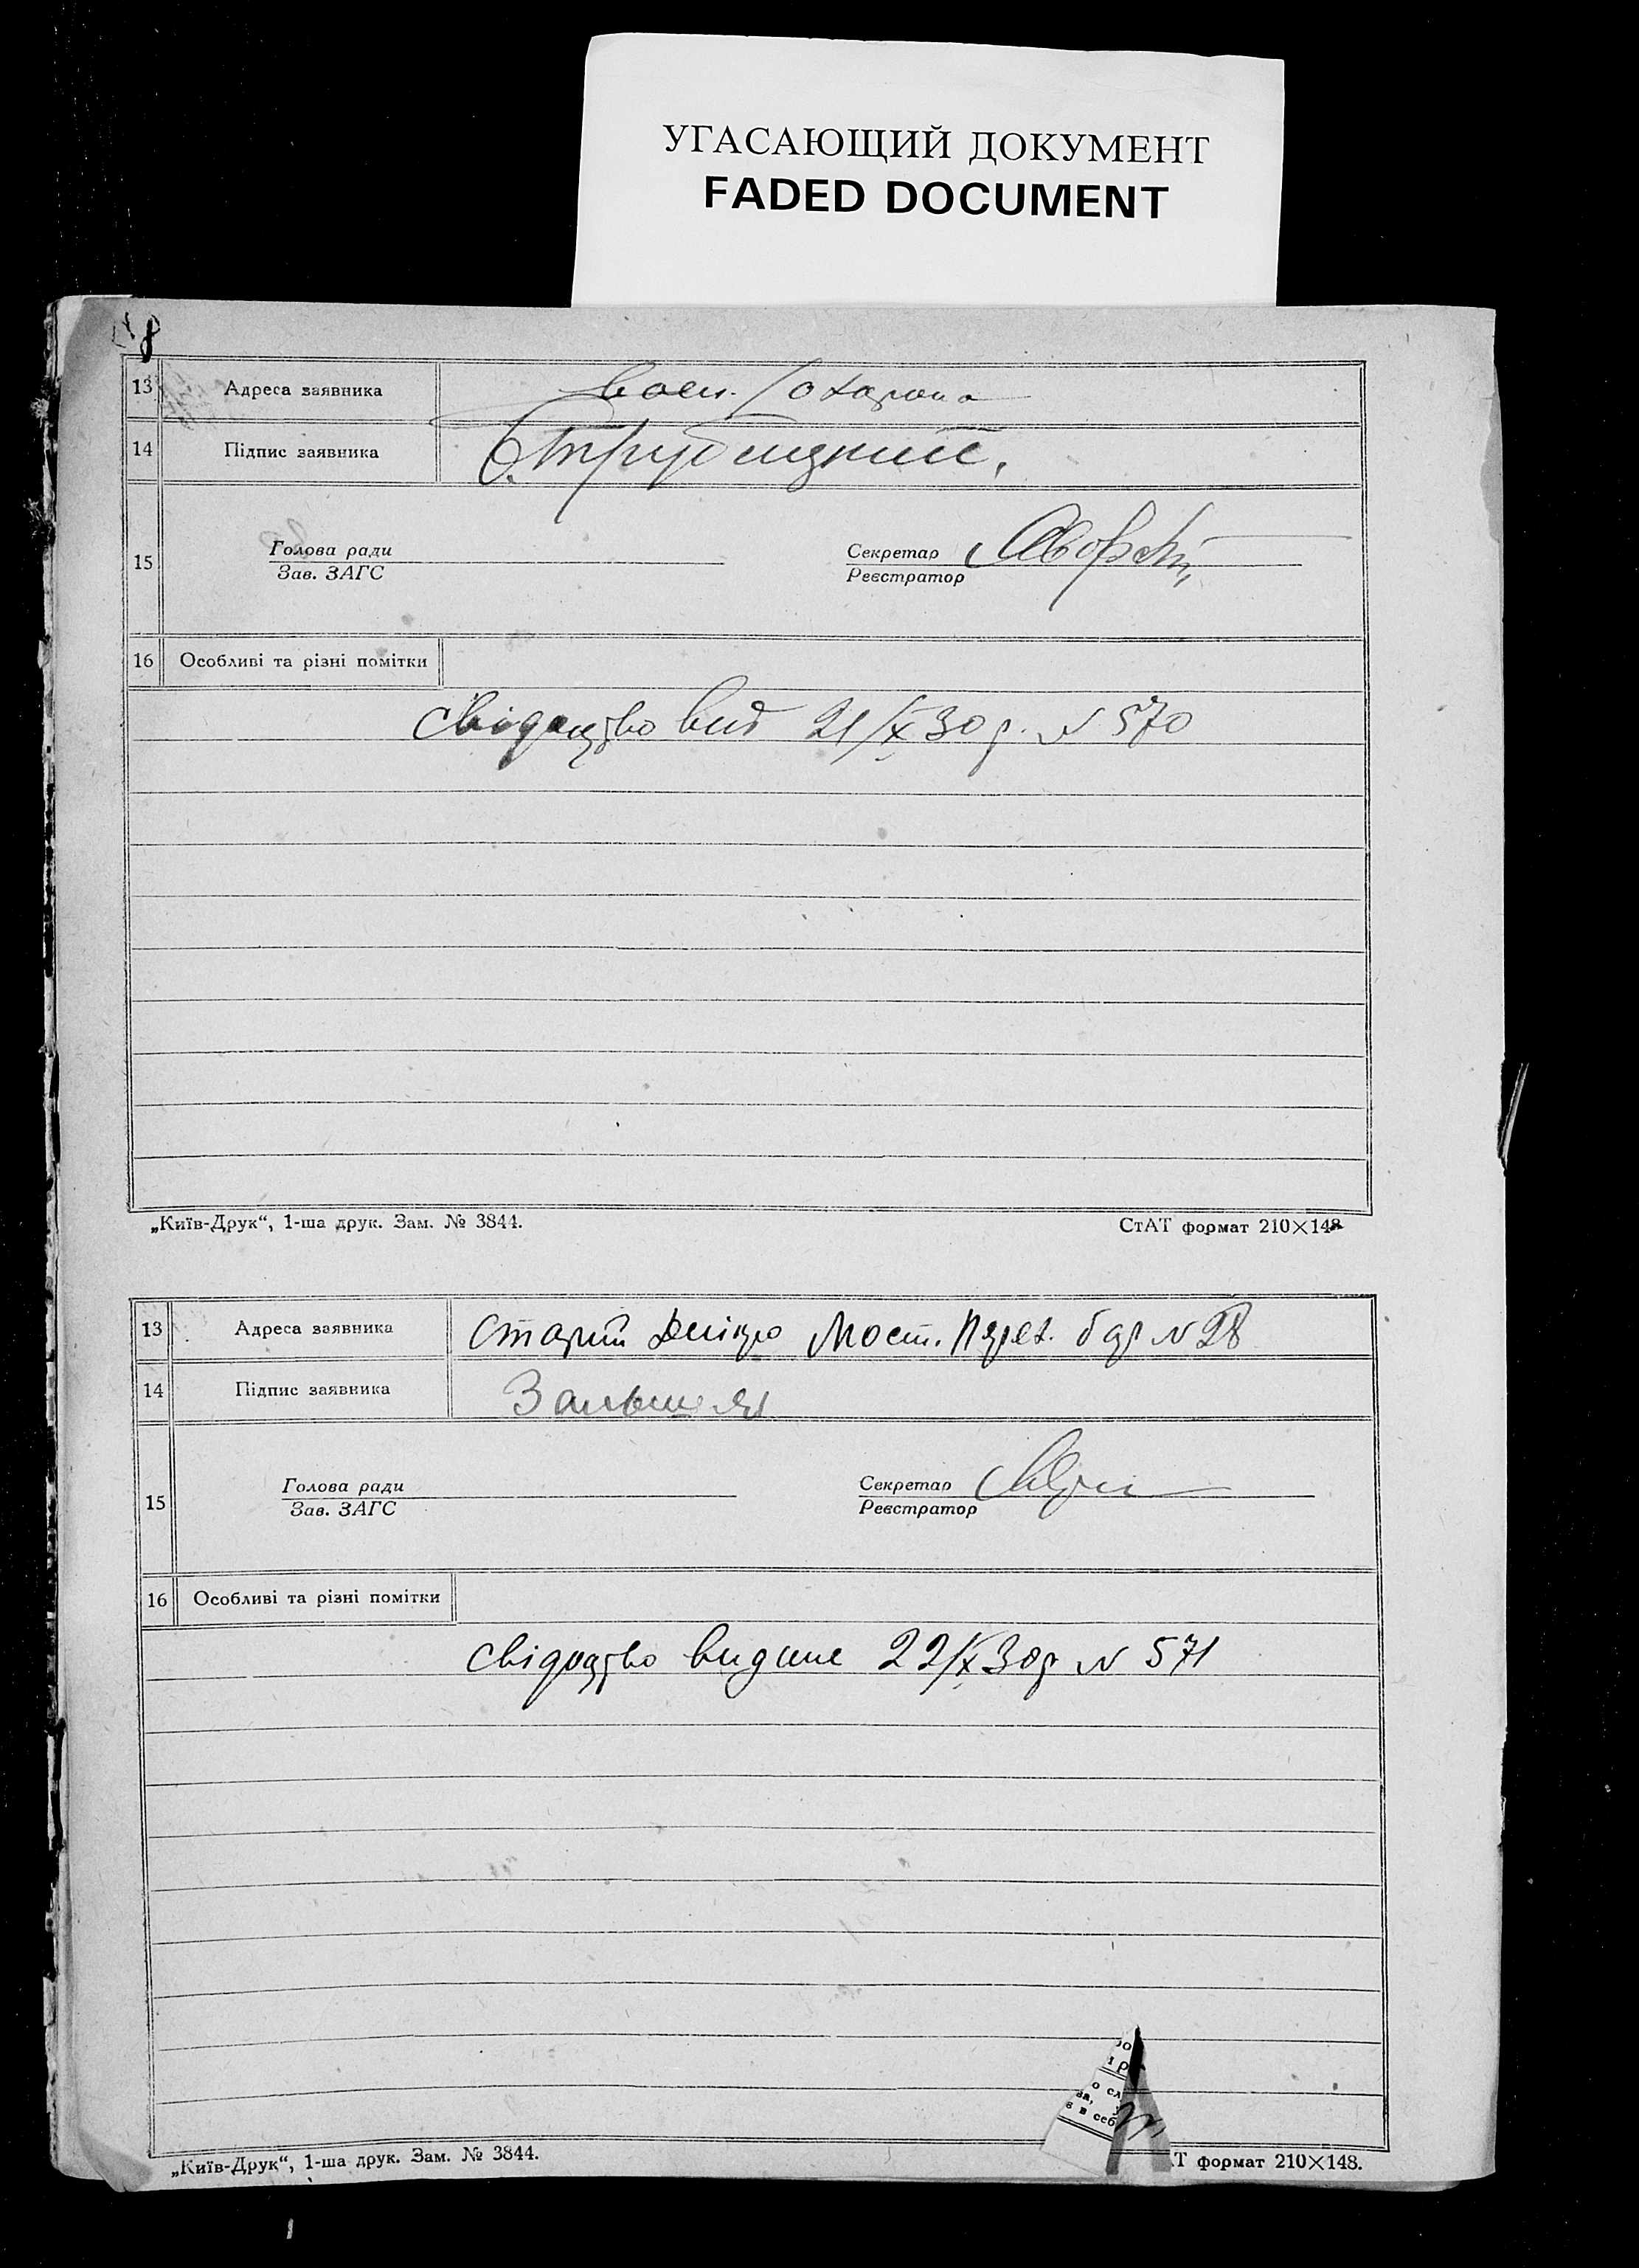 УГАСАЮЩИЙ ДОКУМЕНТ
FADED DOCUMENT
8
13 Адреса заявника воен. / охорона
14 Підпис заявника
15 Голова ради Секретар
Зав. ЗАГС Реєстратор
16 Особливі та різні помітки
свідоцтво вид 21/X 30 р. N 570
„Київ-Друк“, 1-ша друк. Зам. № 3844. СтАТ формат 210×148
13 Адреса заявника Старий Дніпро Мост. N 28
14 Підпис заявника
15 Голова ради Секретар
Зав. ЗАГС Реєстратор
16 Особливі та різні помітки
свідоцтво видане 22/X 30 р N 571
„Київ-Друк“, 1-ша друк. Зам. № 3844. Т формат 210×148.